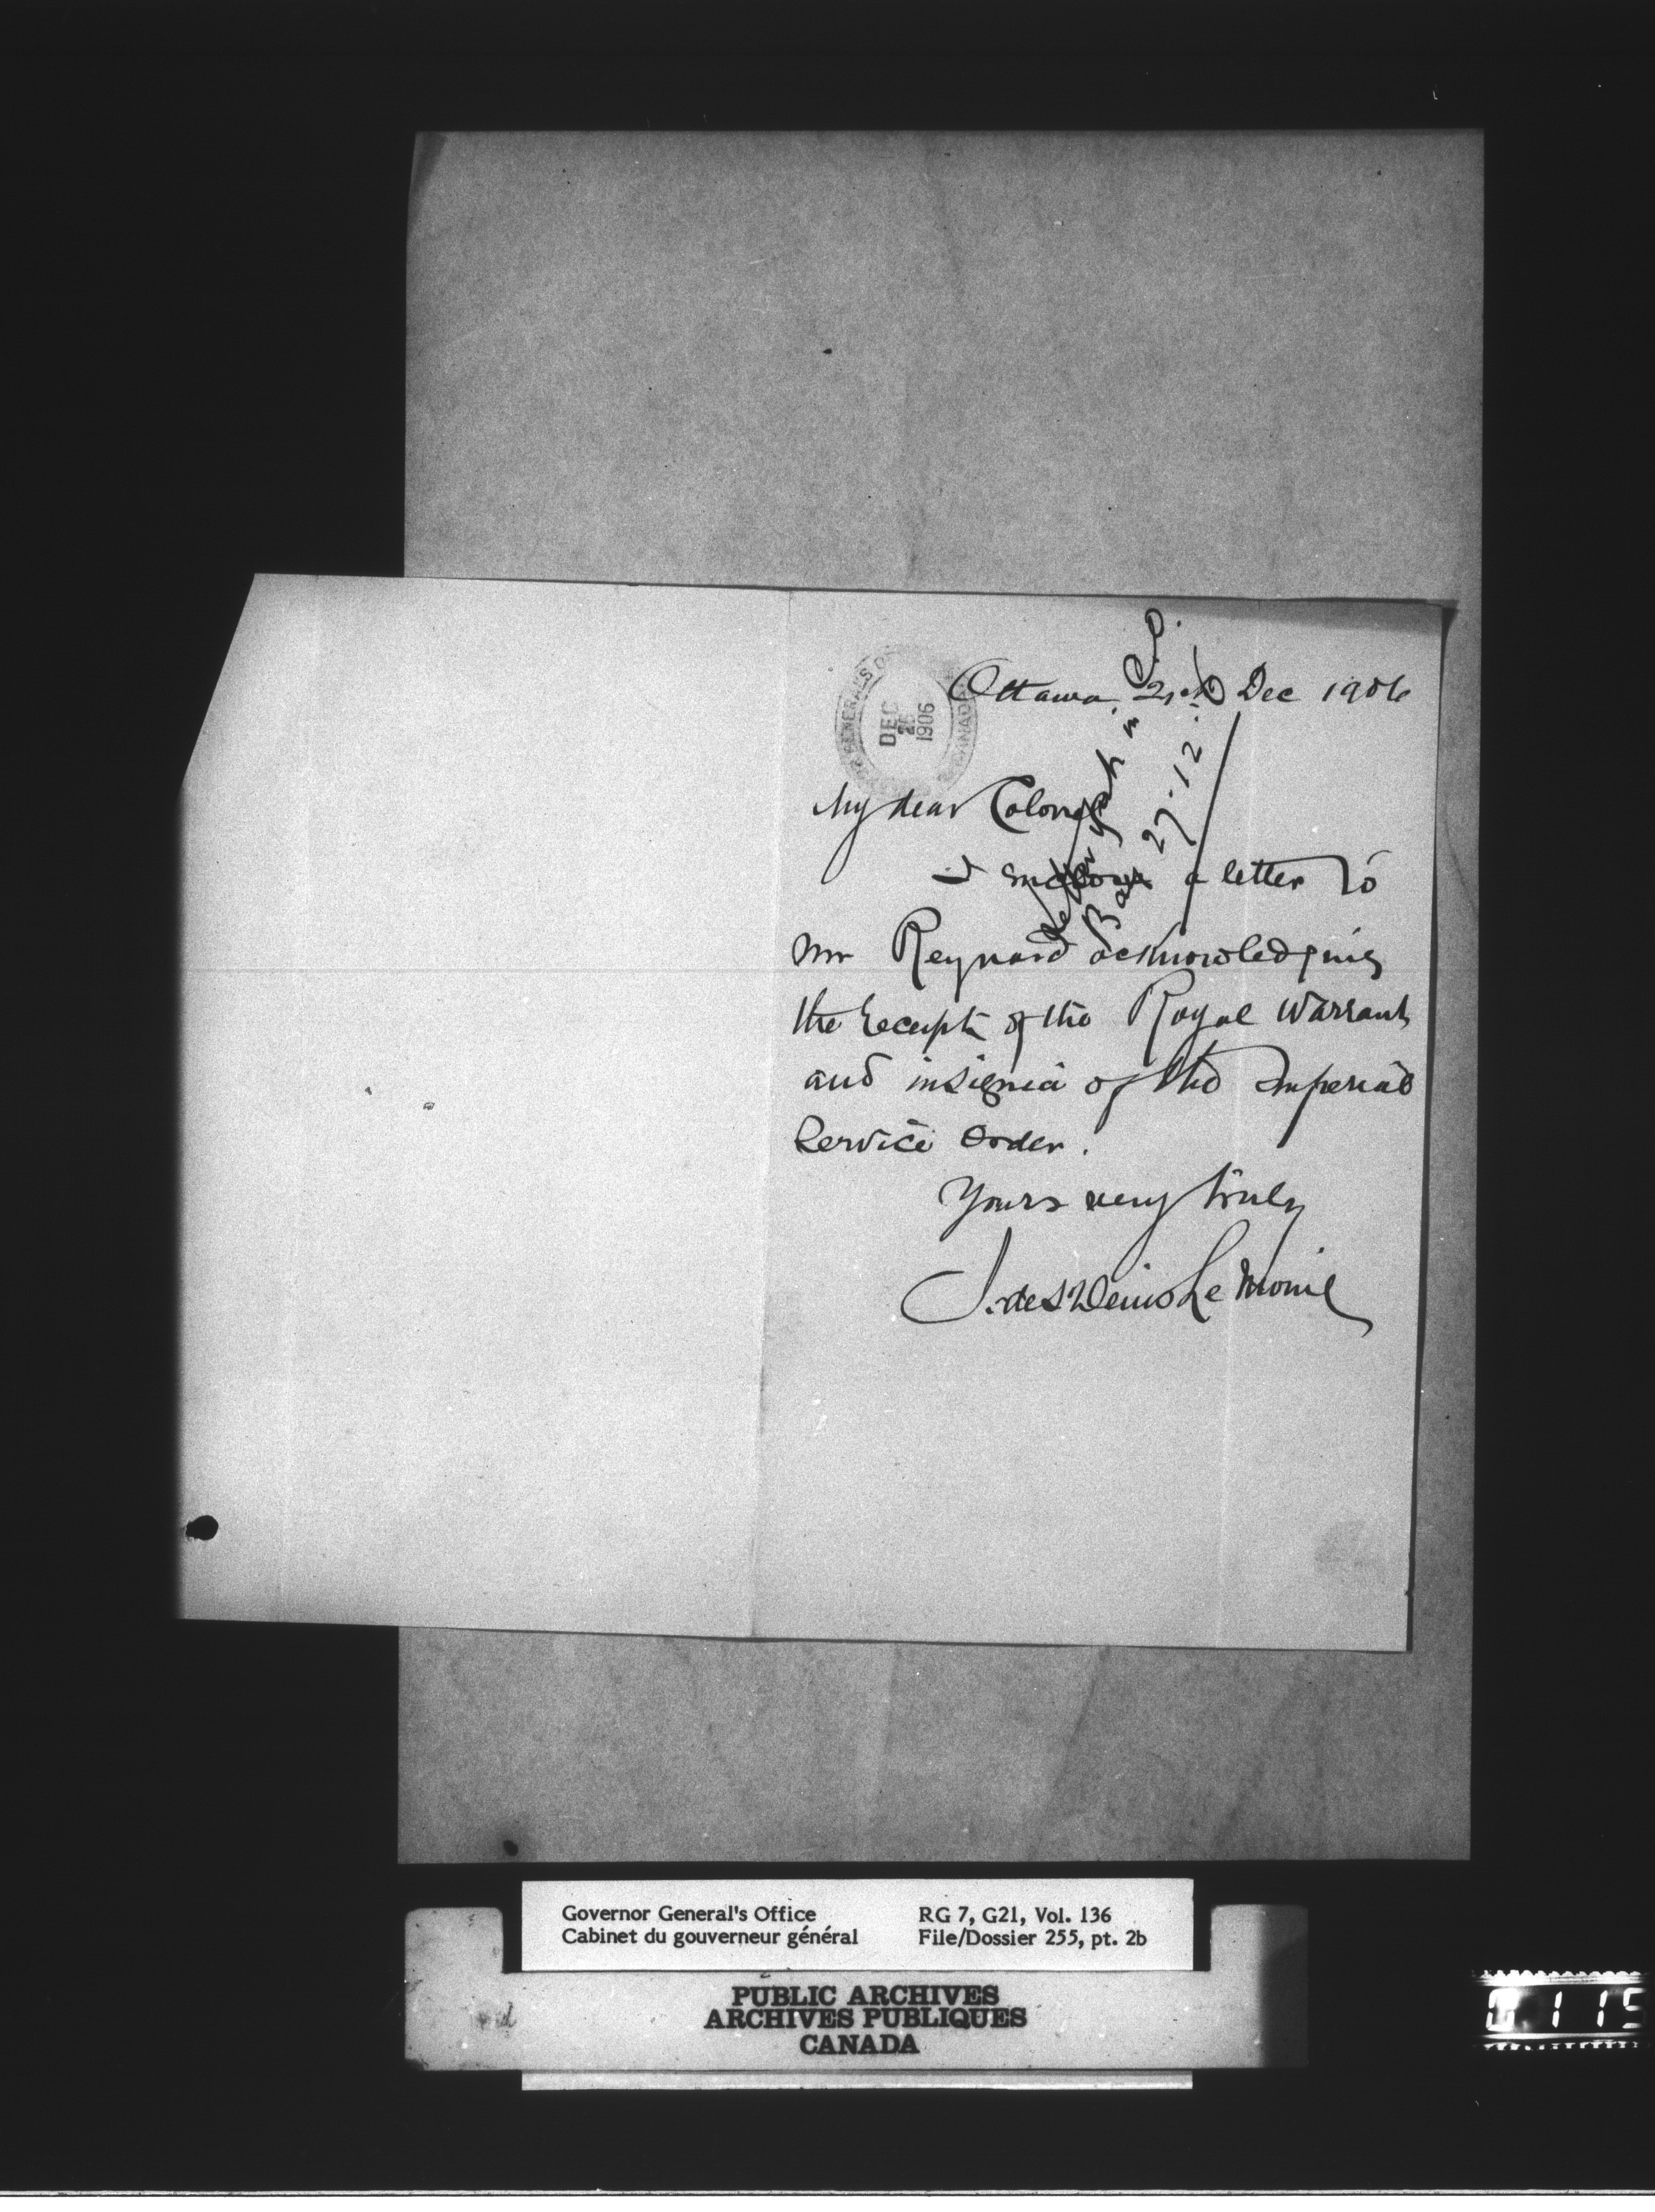 Ottawa, 21st Dec 1906
GENERAL'S O
CANADA
DEC
26
1906
My dear Colonel
I enclose a letter to
Mr Reynard acknowledging
the receipt of the Royal Warrant
and insignia of the Imperial
Service Order.
Yours very truly
J. de St Denis Le Moine
27.12.
Governor General's Office
Cabinet du gouverneur général
RG 7, G21, Vol. 136
File/Dossier 255, pt. 2b
PUBLIC ARCHIVES
ARCHIVES PUBLIQUES
CANADA
0115